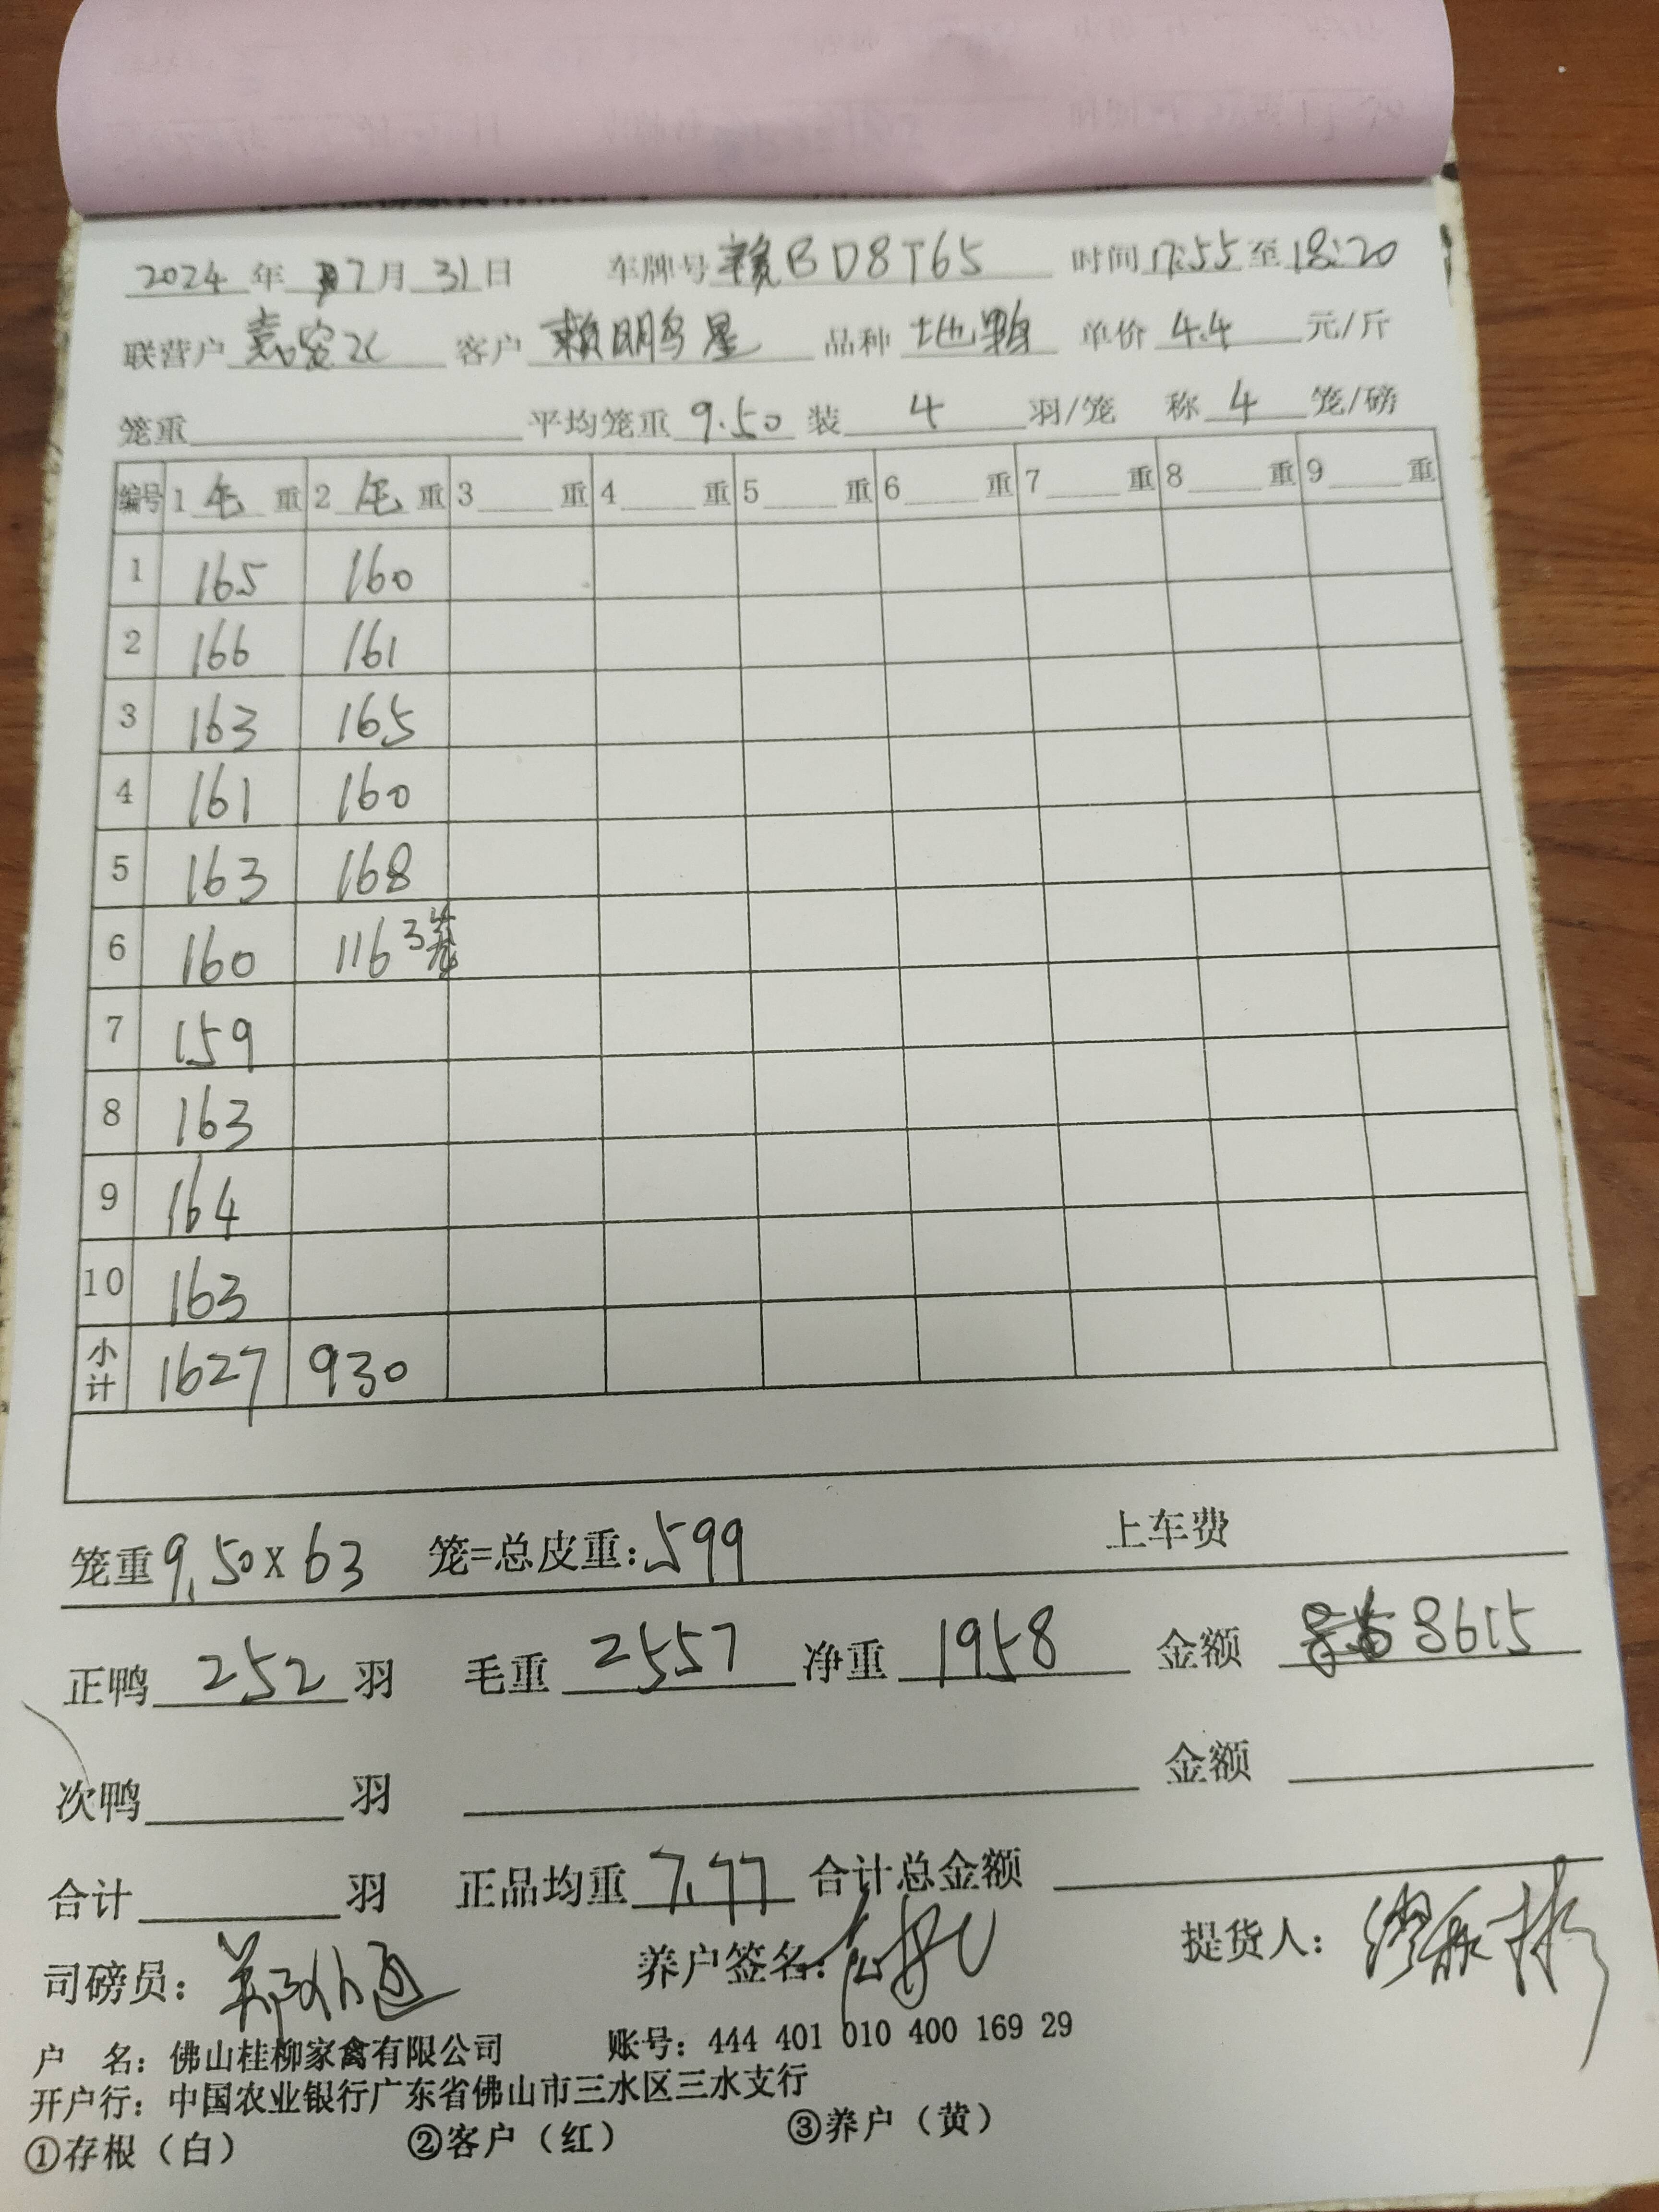 2024年 7月31日 车牌号 BD8T65 时间17:55至18:20
联营户 客户 赖明星 品种 土也鸭 单价4.4元/斤
笼重 平均笼重9.50装4羽/笼 称4笼/磅
编号 1毛重 2毛重 3重 4重 5重 6重 7重 8重 9重
1 165 160
2 166 161
3 163 165
4 161 160
5 163 168
6 160 116 3笼
7 159
8 163
9 164
10 163
小计 1627 930
笼重9.50×63 笼=总皮重:599 上车费
正鸭252羽 毛重2557净重1958 金额8615
次鸭 羽 金额
合计 羽 正品均重7.77 合计总金额
司磅员: 养户签名: 提货人:
户 名:佛山桂柳家禽有限公司 账号:444 401 010 400 169 29
开户行:中国农业银行广东省佛山市三水区三水支行
①存根(白) ②客户(红) ③养户(黄)